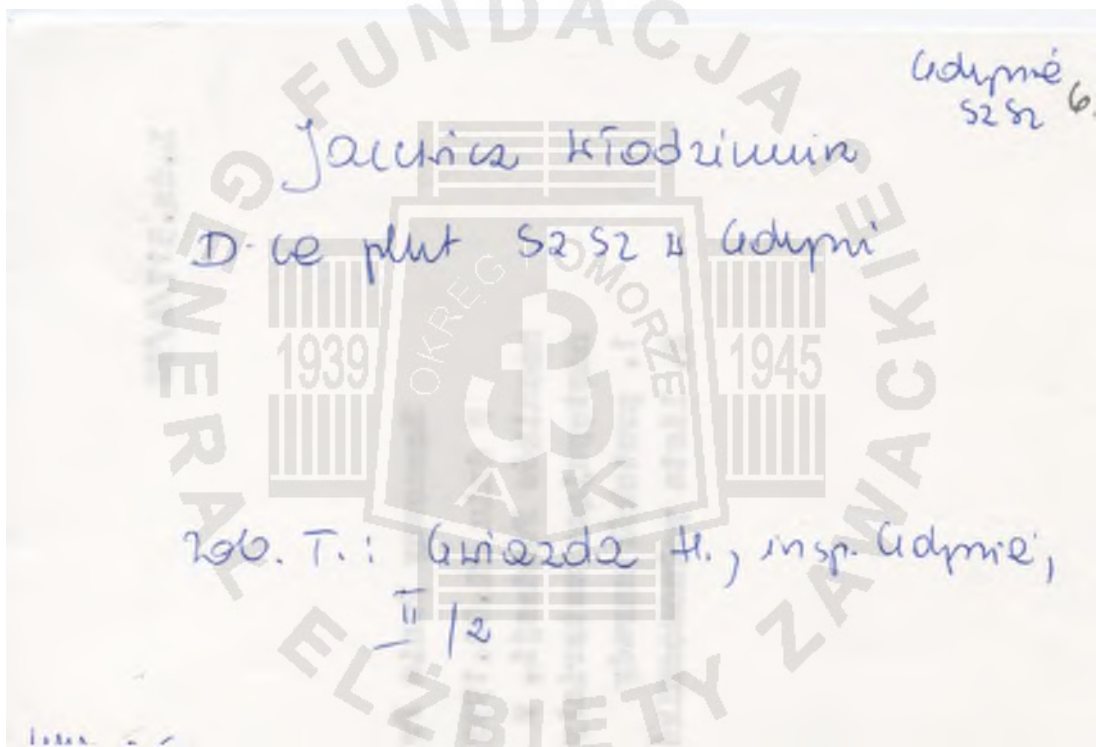 Gdynia
SZSZ 6.
Włodzimierz
D-ca plut SZSZ w Gdyni
T.: Gwiazda H., insp. Gdynia,
II/2
FUNDACJA GENERAŁ ELŻBIETY ZAWACKIEJ
OKRĘG POMORZE
1939
1945
AK